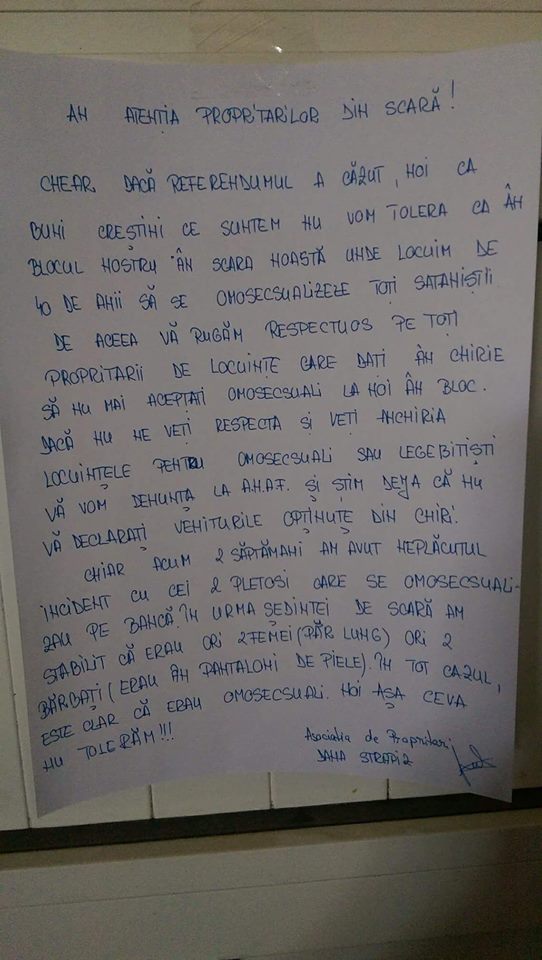 AН ATENȚIA PROPRITARILOR DIN SCARĂ!
CHEAR DACĂ REFERENDUMUL A CĂZUT, NOI CA
BUNI CREȘTINI CE SUNTEM NU VOM TOLERA CA ÂN
BLOCUL NOSTRU ÂN SCARA NOASTĂ UNDE LOCUIM DE
40 DE ANII SĂ SE OMOSECSUALIZEZE TOȚI SATANIȘTII
DE ACEEA VĂ RUGĂM RESPECTUOS PE TOȚI
PROPRITARII DE LOCUINȚE CARE DATI ÂN CHIRIE
SĂ NU MAI ACEPTATI OMOSECSUALI LA NOI ÂN BLOC.
DACĂ NU NE VEȚI RESPECTA SI VETI ANCHIRIA
LOCUINȚELE PENTRU OMOSECSUALI SAU LEGEBITIȘTI
VĂ VOM DENUNȚA LA A.N.A.F. ȘI ȘTIM DEJA CĂ NU
VĂ DECLARAȚI VENITURILE OPȚINUTE DIN CHIRI.
CHIAR ACUM 2 SĂPTĂMANI AM AVUT NEPLĂCUTUL
INCIDENT CU CEI 2 PLETOSI CARE SE OMOSECSUALI-
ZAU PE BANCĂ. ÎN URMA ȘEDINTEI DE SCARĂ AM
STABILIT CĂ ERAU ORI 2 FEMEI (PĂR LUNG) ORI 2
BĂRBAȚI (ERAU ÂN PANTALONI DE PIELE). ÎN TOT CAZUL,
ESTE CLAR CĂ ERAU OMOSECSUALI. NOI AȘA CEVA
NU TOLERĂM!!!
Asociatia de Propritari
DANA STRADI 2